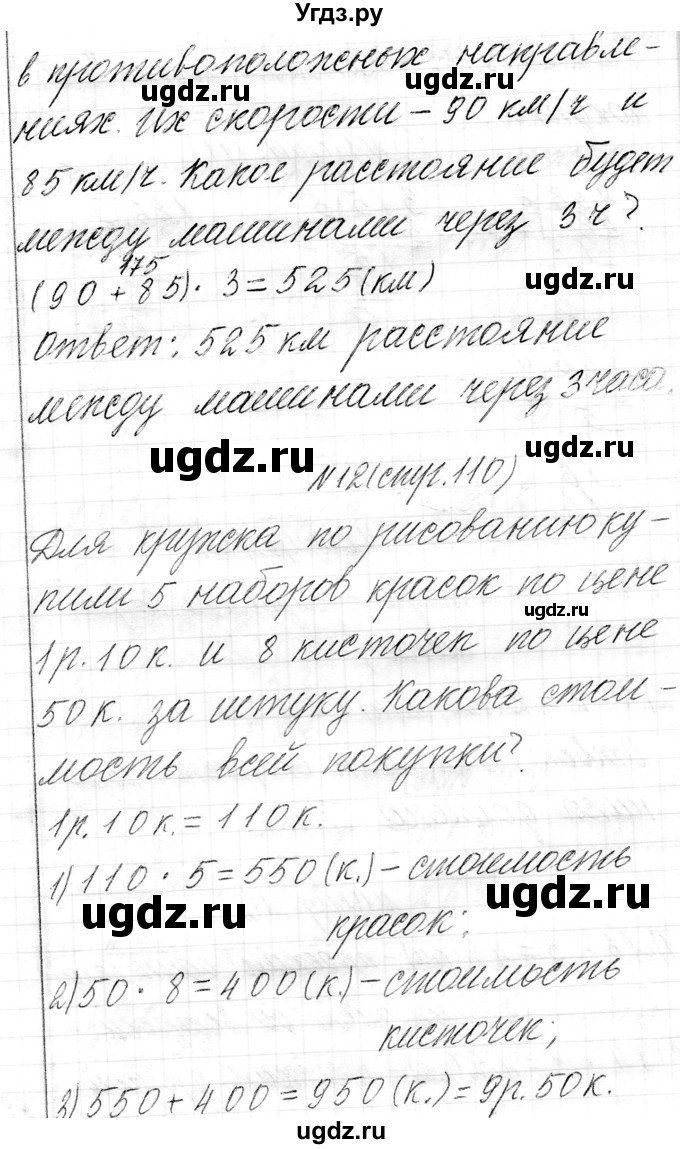 Угдз.ру
в противоположных направле-
ниях. Их скорости – 90 км/ч и
85 км/ч. Какое расстояние будет
между машинами через 3 ч?
175
(90 + 85) · 3 = 525 (км)
Ответ: 525 км расстояние
между машинами через 3 часа.
№12 (стр. 110)
Для кружка по рисованию ку-
пили 5 наборов красок по цене
1 р. 10 к. и 8 кисточек по цене
50 к. за штуку. Какова стои-
мость всей покупки?
1 р. 10 к. = 110 к.
1) 110 · 5 = 550 (к.) – стоимость
красок;
2) 50 · 8 = 400 (к.) – стоимость
кисточек;
3) 550 + 400 = 950 (к.) = 9 р. 50 к.
ugdz.ru
ugdz.ru
ugdz.ru
ugdz.ru
ugdz.ru
ugdz.ru
ugdz.ru
ugdz.ru
ugdz.ru